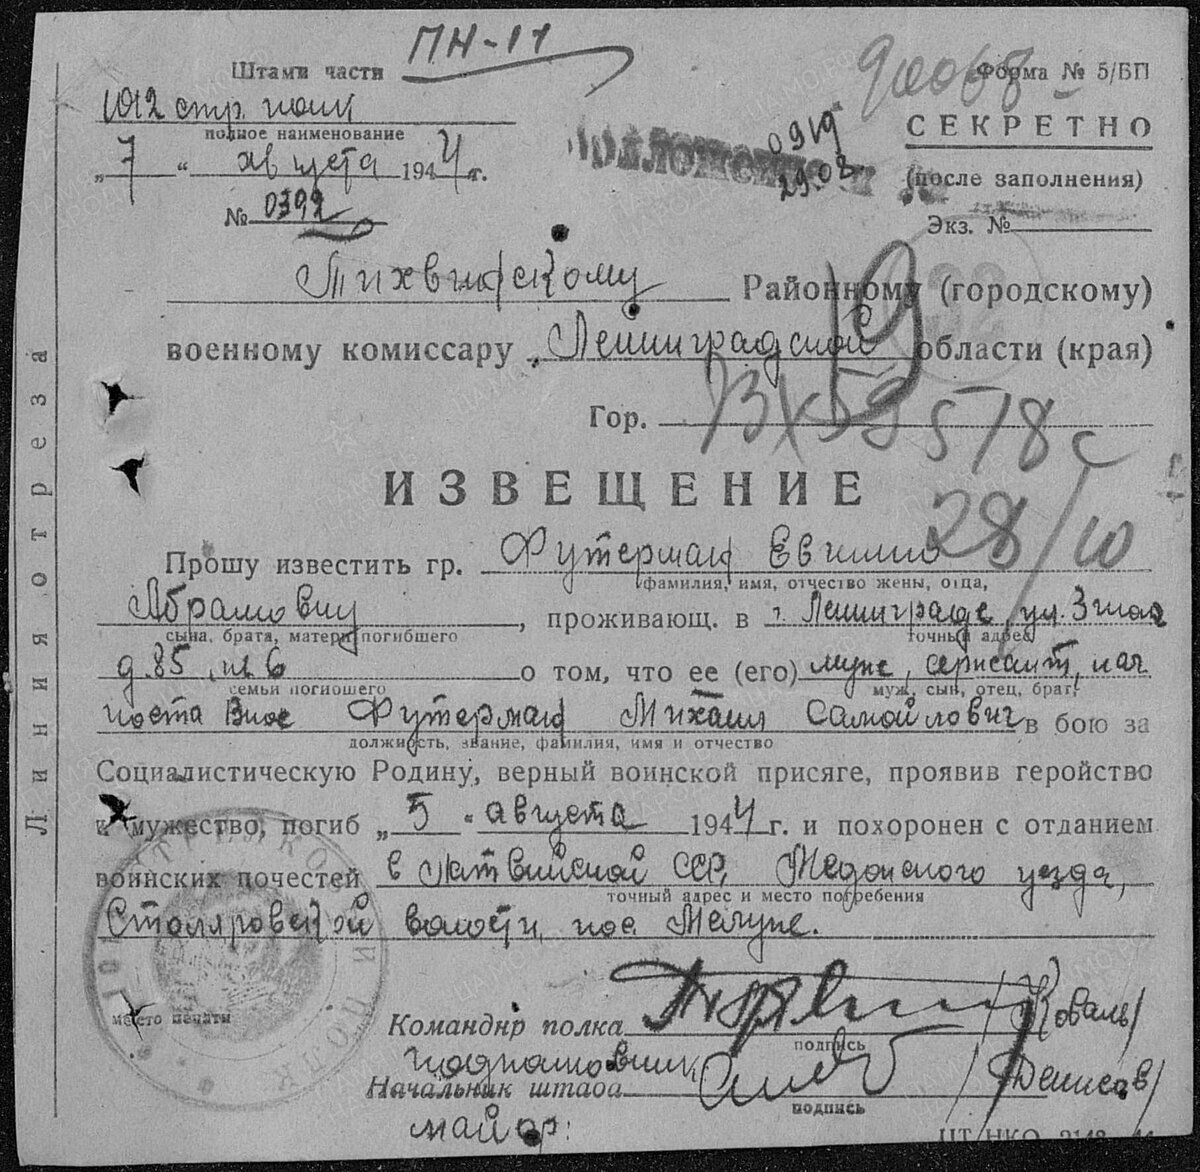 ПН-11
Штамп части
Форма № 5/БП
1012 стр. полк
полное наименование
СЕКРЕТНО
0919
29.08
„7“ августа 1944 г.
(после заполнения)
№ 0392
Экз. №
Тихвинскому Районному (городскому)
военному комиссару Ленинградской области (края)
Гор.
578с
28/10
ИЗВЕЩЕНИЕ
Прошу известить гр. Футерман Евгению
фамилия, имя, отчество жены, отца,
Абрамовну, проживающ. в г. Ленинграде, ул.
сына, брата, матери погибшего
точный адрес
д. 85, кв. 6 о том, что ее (его) муж, сержант, нач.
семьи погибшего
муж, сын, отец, брат,
поста Внос Футерман Михаил Самойлович в бою за
должность, звание, фамилия, имя и отчество
Социалистическую Родину, верный воинской присяге, проявив геройство
и мужество, погиб „5“ августа 1944 г. и похоронен с отданием
воинских почестей в Латвийской ССР, Мадонского уезда,
точный адрес и место погребения
Столяровской волости, пос. Мелупе.
место печати
Командир полка /Коваль/
подпись
подполковник
Начальник штаба /Денисов/
подпись
майор:
Линия отреза